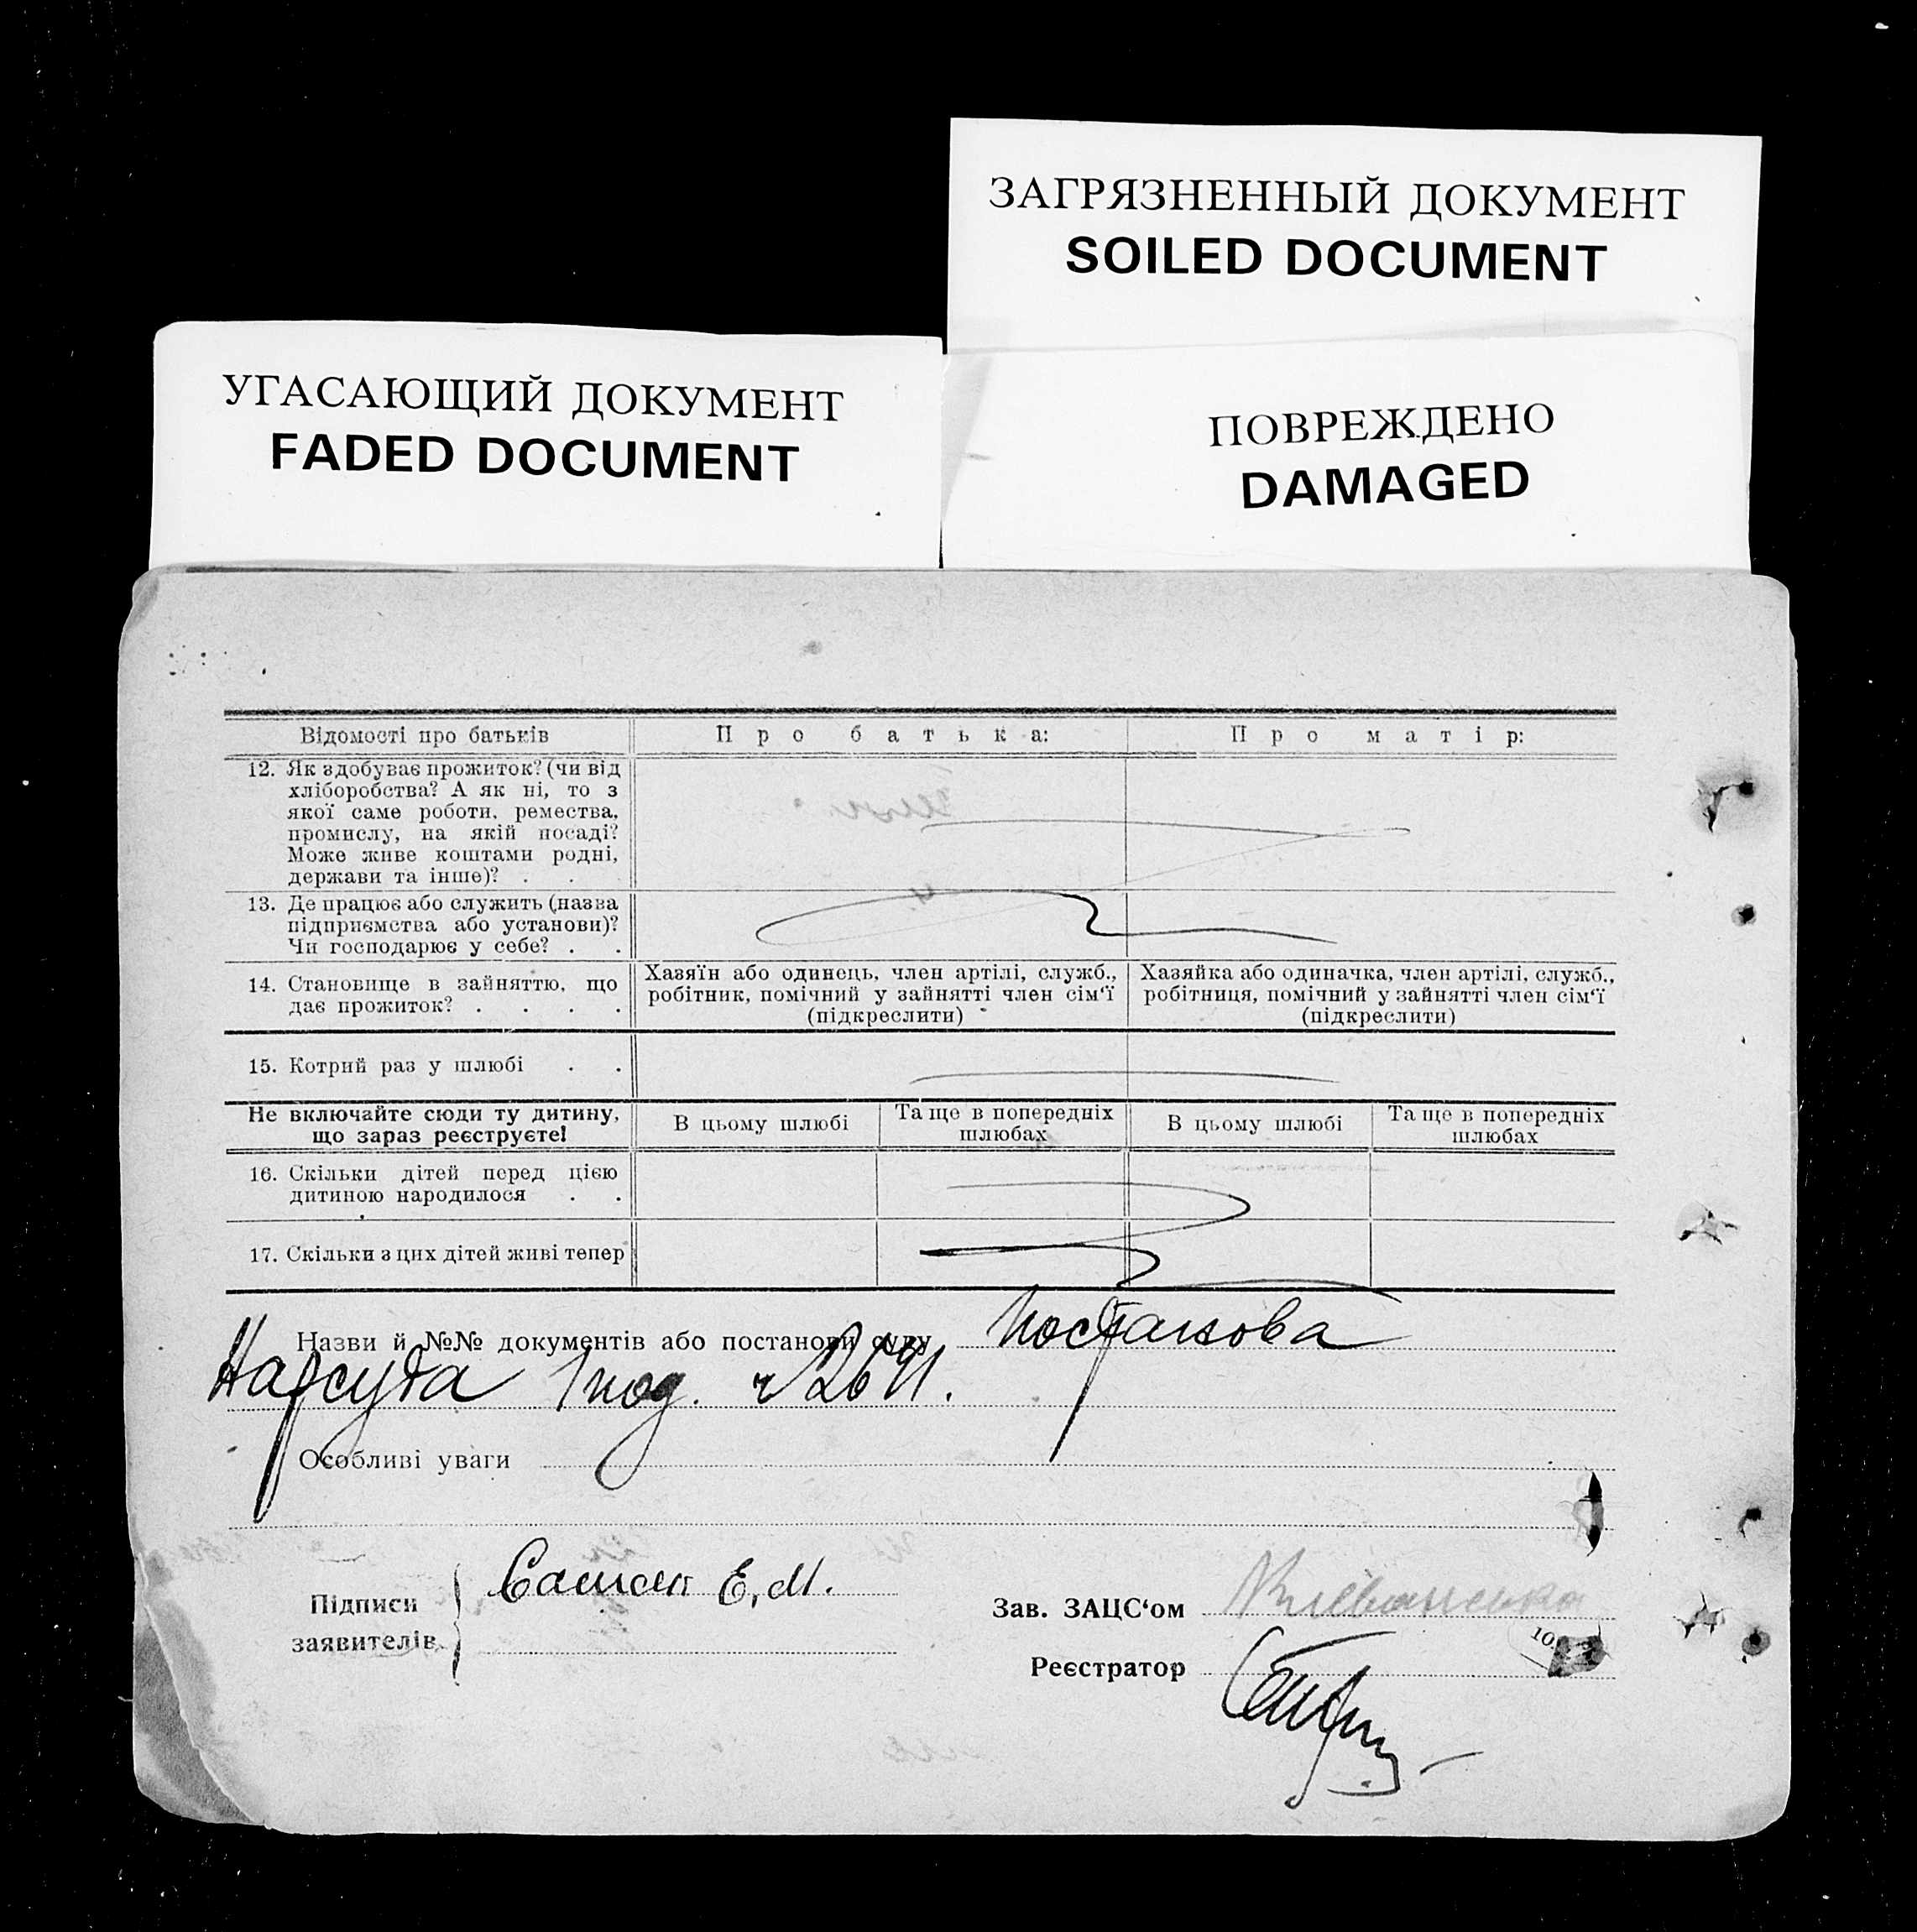 ЗАГРЯЗНЕННЫЙ ДОКУМЕНТ
SOILED DOCUMENT
УГАСАЮЩИЙ ДОКУМЕНТ
FADED DOCUMENT
ПОВРЕЖДЕНО
DAMAGED
Відомості про батьків
Про батька:
Про матір:
12. Як здобуває прожиток? (чи від
хліборобства? А як ні, то з
якої саме роботи, ремества,
промислу, на якій посаді?
Може живе коштами родні,
держави та інше)? . .
13. Де працює або служить (назва
підприємства або установи)?
Чи господарює у себе? . .
14. Становище в зайняттю, що
дає прожиток? . . . .
Хазяїн або одинець, член артілі, служб.,
робітник, помічний у зайнятті член сім‘ї
(підкреслити)
Хазяйка або одиначка, член артілі, служб.,
робітниця, помічний у зайнятті член сім‘ї
(підкреслити)
15. Котрий раз у шлюбі . .
Не включайте сюди ту дитину,
що зараз реєструєте!
В цьому шлюбі
Та ще в попередніх
шлюбах
В цьому шлюбі
Та ще в попередніх
шлюбах
16. Скільки дітей перед цією
дитиною народилося . .
17. Скільки з цих дітей живі тепер
Назви й №№ документів або постанови суду Постанова
Нарсуда
Особливі уваги
Підписи
заявителів
Е. М.
Зав. ЗАЦС‘ом
Реєстратор